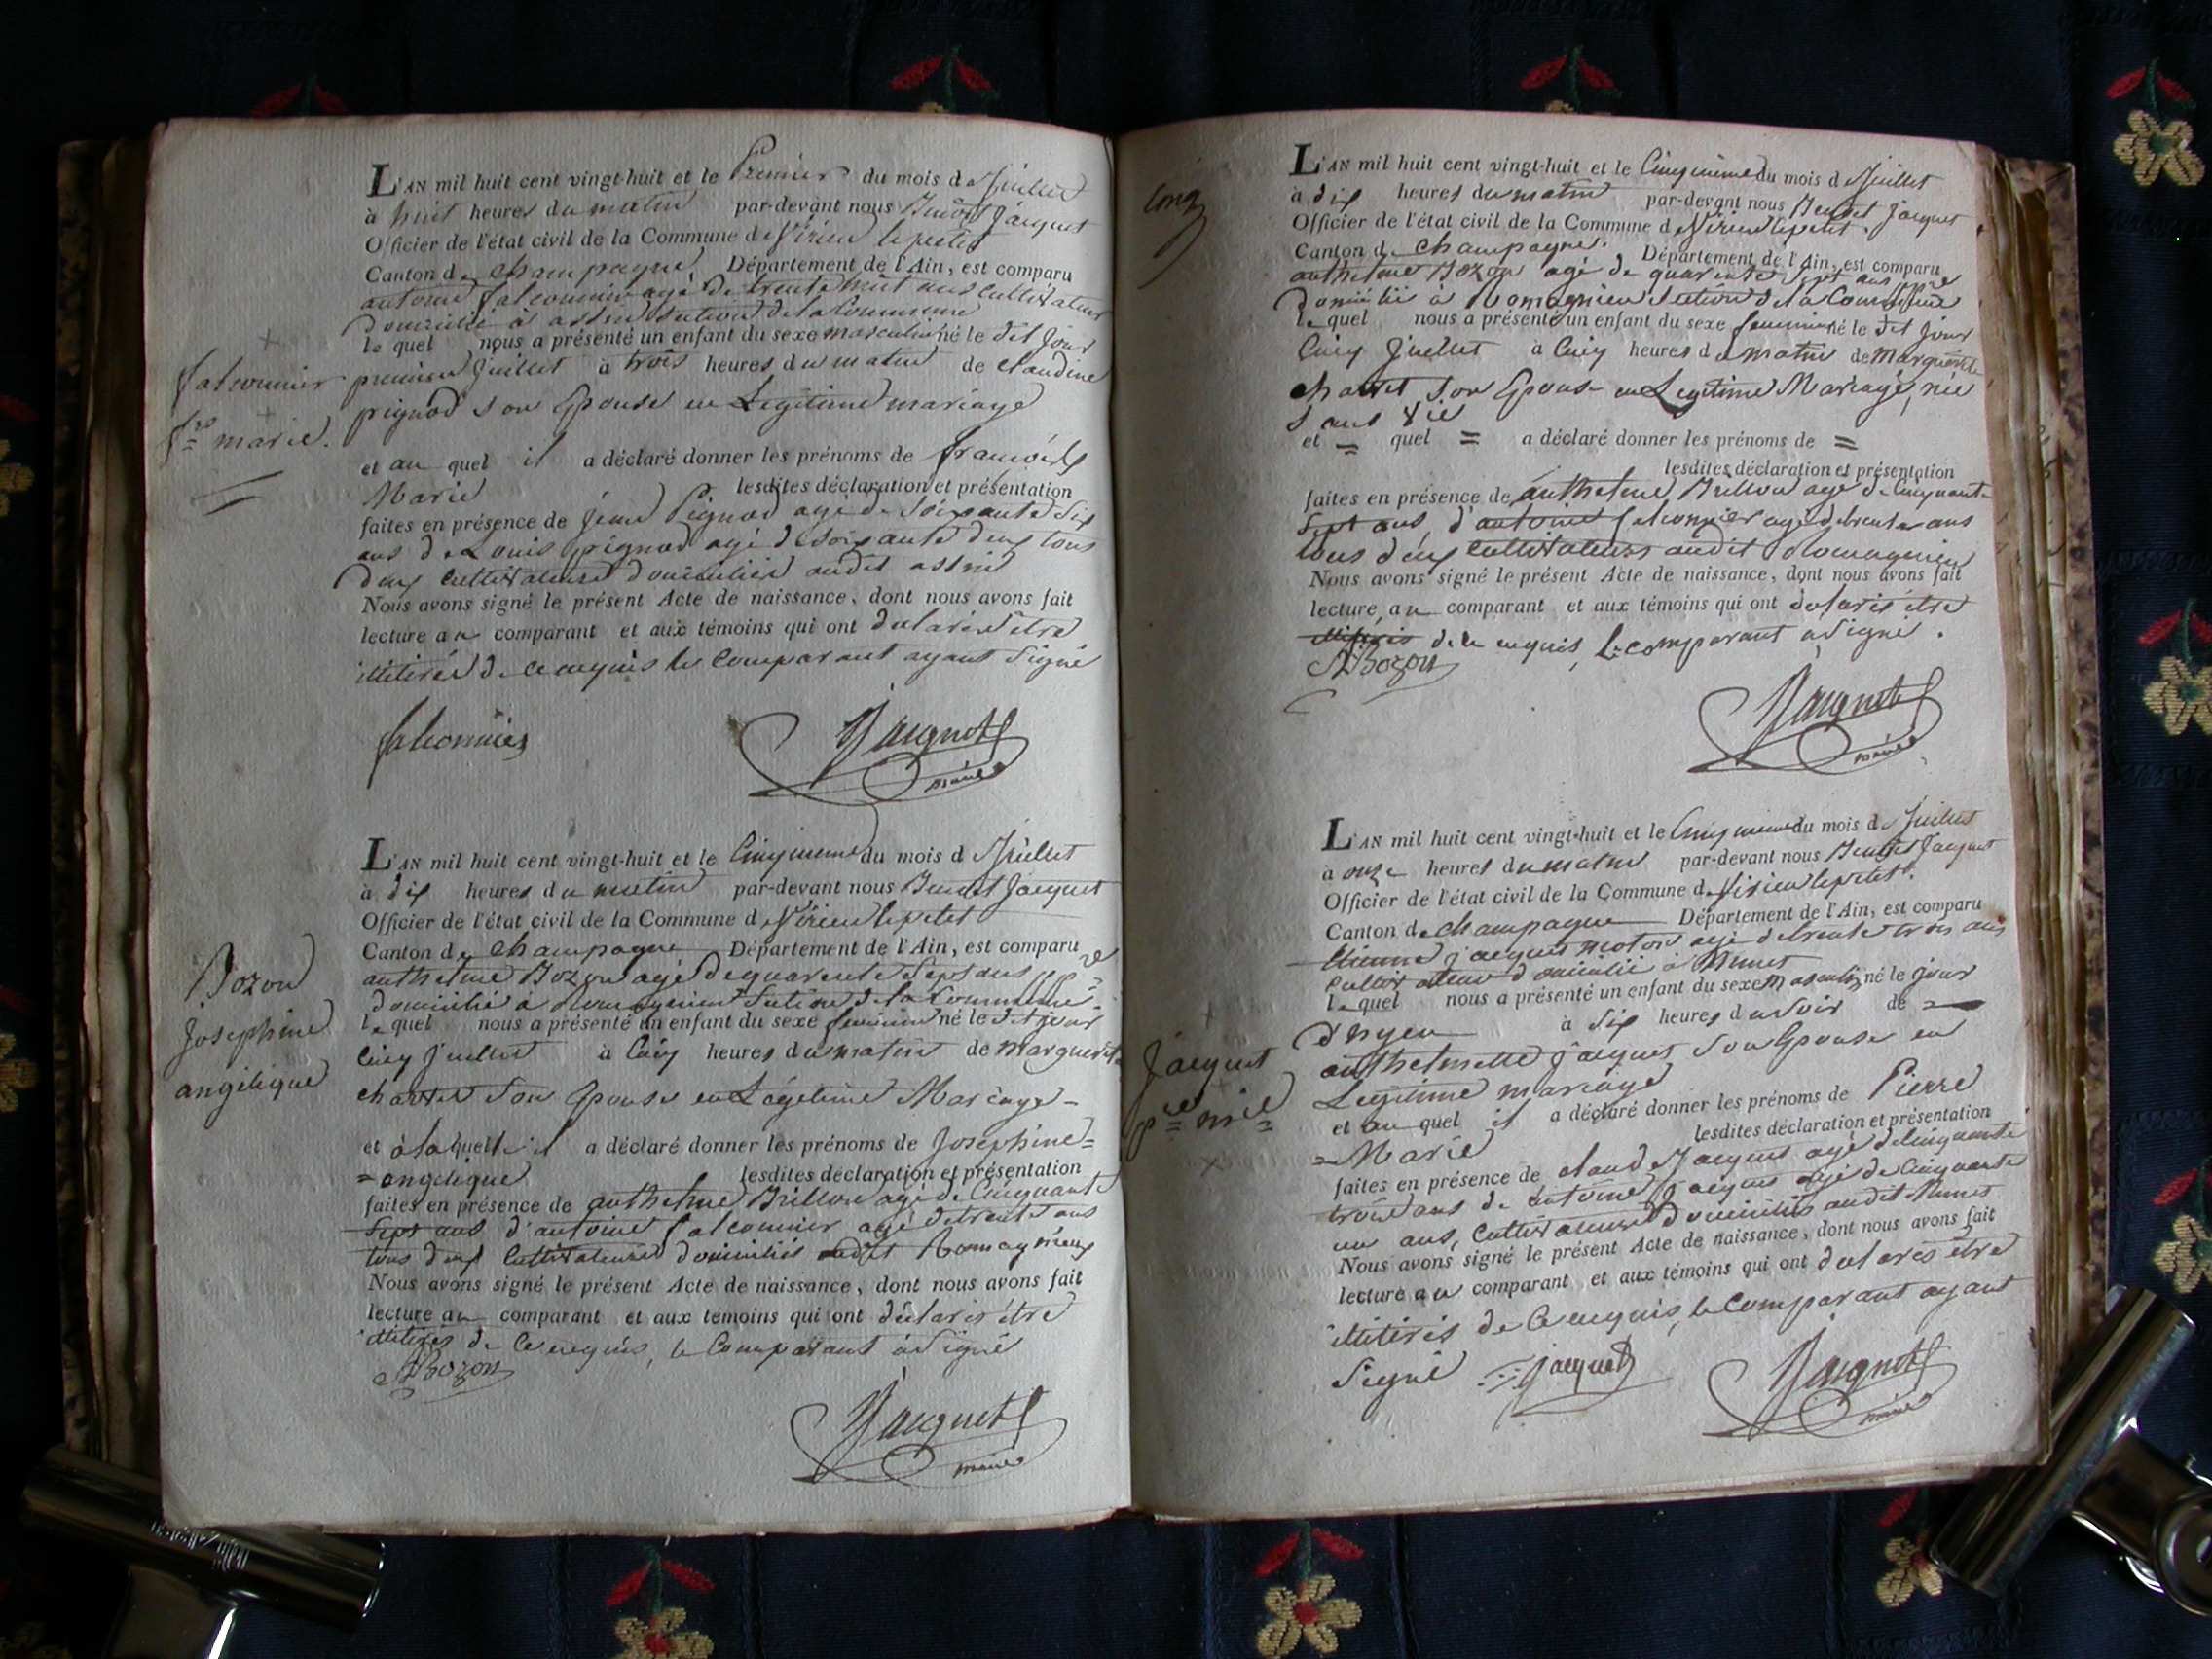 L'AN mil huit cent vingt-huit et le Premier du mois de Juillet
à huit heures du matin par-devant nous Benoit Jacquet
Officier de l'état civil de la Commune de Virieu le petit
Canton de Champagne, Département de l'Ain, est comparu
antoine falconnier agé de trente huit ans Cultivateur
domicilié à assin section de la Commune
le quel nous a présenté un enfant du sexe masculin né le dit Jour
premier Juillet à trois heures du matin de Claudine
pignod son Epouse en Legitime mariage
et au quel il a déclaré donner les prénoms de françois
Marie lesdites déclaration et présentation
faites en présence de Pignod agé de Soixante Six
ans de Louis pignod agé de soixante deux tous
deux Cultivateurs domiciliés audit assin
Nous avons signé le présent Acte de naissance, dont nous avons fait
lecture au comparant et aux témoins qui ont déclarés être
illitirés de ce enquis le Comparant ayant Signé
falconnier
Jacquet
maire
falconnier
fçs marie.
L'AN mil huit cent vingt-huit et le Cinquieme du mois de Juillet
à dix heures du matin par-devant nous Benoit Jacquet
Officier de l'état civil de la Commune de Virieu le petit
Canton de Champagne Département de l'Ain, est comparu
anthelme Bozon agé de quarente Sept ans
domicilié à Romagnieu Section de la Commune
le quel nous a présenté un enfant du sexe feminin né le dit jour
Cinq Juillet à Cinq heures du matin de Marguerite
charvet Son Epouse en Légitime Mariage
et à laquelle il a déclaré donner les prénoms de Josephine=
=angelique lesdites déclaration et présentation
faites en présence de anthelme Brillon agé de Cinquante
Sept ans d'antoine falconnier agé de trente ans
tous deux Cultivateurs domiciliés audit Romagnieu
Nous avons signé le présent Acte de naissance, dont nous avons fait
lecture au comparant et aux témoins qui ont déclarés être
illitirés de Ce enquis, le Comparant à Signé
Bozon
Jacquet
maire
Bozon
Josephine
angélique
L'AN mil huit cent vingt-huit et le Cinquieme du mois de Juillet
à dix heures du matin par-devant nous Benoit Jacquet
Officier de l'état civil de la Commune de Virieu le petit.
Canton de Champagne. Département de l'Ain, est comparu
anthelme Bozon agé de quarente Sept ans
domicilié à Romagnieu Section de la Commune
le quel nous a présenté un enfant du sexe feminin né le dit Jour
Cinq Juillet à Cinq heures du matin de Marguerite
charvet, Son Epouse en Legitime Mariage, née
Sans Vie
et = quel = a déclaré donner les prénoms de =
lesdites déclaration et présentation
faites en présence de anthelme Brillon agé de Cinquante
Sept ans, d'antoine falconnier agé de trente ans
tous deux Cultivateurs audit Romagnieu
Nous avons signé le présent Acte de naissance, dont nous avons fait
lecture au comparant et aux témoins qui ont déclarés être
de ce enquis, Le comparant à Signé.
Bozon
Jacquet
maire
L'AN mil huit cent vingt-huit et le Cinquieme du mois de Juillet
à onze heures du matin par-devant nous Benoit Jacquet
Officier de l'état civil de la Commune de Virieu le petit.
Canton de Champagne Département de l'Ain, est comparu
Etienne jacquet agé de trente trois ans
Cultivateur domicilié à Munet
le quel nous a présenté un enfant du sexe masculin né le jour
d'hyer à Six heures du Soir de =
anthelmette jacquet Son Epouse en
Legitime mariage
et au quel il a déclaré donner les prénoms de Pierre
=Marie lesdites déclaration et présentation
faites en présence de claude Jacquet agé de Cinquante
trois ans de antoine jacquet agé de Cinquante
un ans, Cultivateurs domiciliés audit Munet
Nous avons signé le présent Acte de naissance, dont nous avons fait
lecture au comparant et aux témoins qui ont déclarés être
illitirés de Ce enquis, le Comparant ayant
Signé jacquet
Jacquet
maire
Jacquet